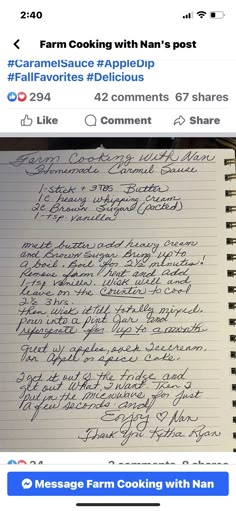 2:40
Farm Cooking with Nan's post
#CaramelSauce #AppleDip
#FallFavorites #Delicious
294 42 comments 67 shares
Like Comment Share
Farm Cooking With Nan
Homemade Carmel Sauce
1-Stick + 3 TBS Butter
1c heavy whipping cream
2c Brown Sugar (packed)
1-tsp vanilla
melt butter add heavy cream
and Brown Sugar Bring up to
a boil. Boil for 2½ minutes!
Remove from heat and add
1-tsp vanilla. Wisk well and
leave on the Counter to Cool
2½ 3 hrs.
Then wisk it till totally mixed.
pour into a pint Jar and
refrigerate for up to a month
Great w/ apples, over Icecream,
or Apple or spice Cake.
I get it out of the fridge and
get out What I want Then I
put in the microwave for Just
a few seconds and
Enjoy ♡ Nan
Thank You Retha Ryan
34 3 comments 8 shares
Message Farm Cooking with Nan